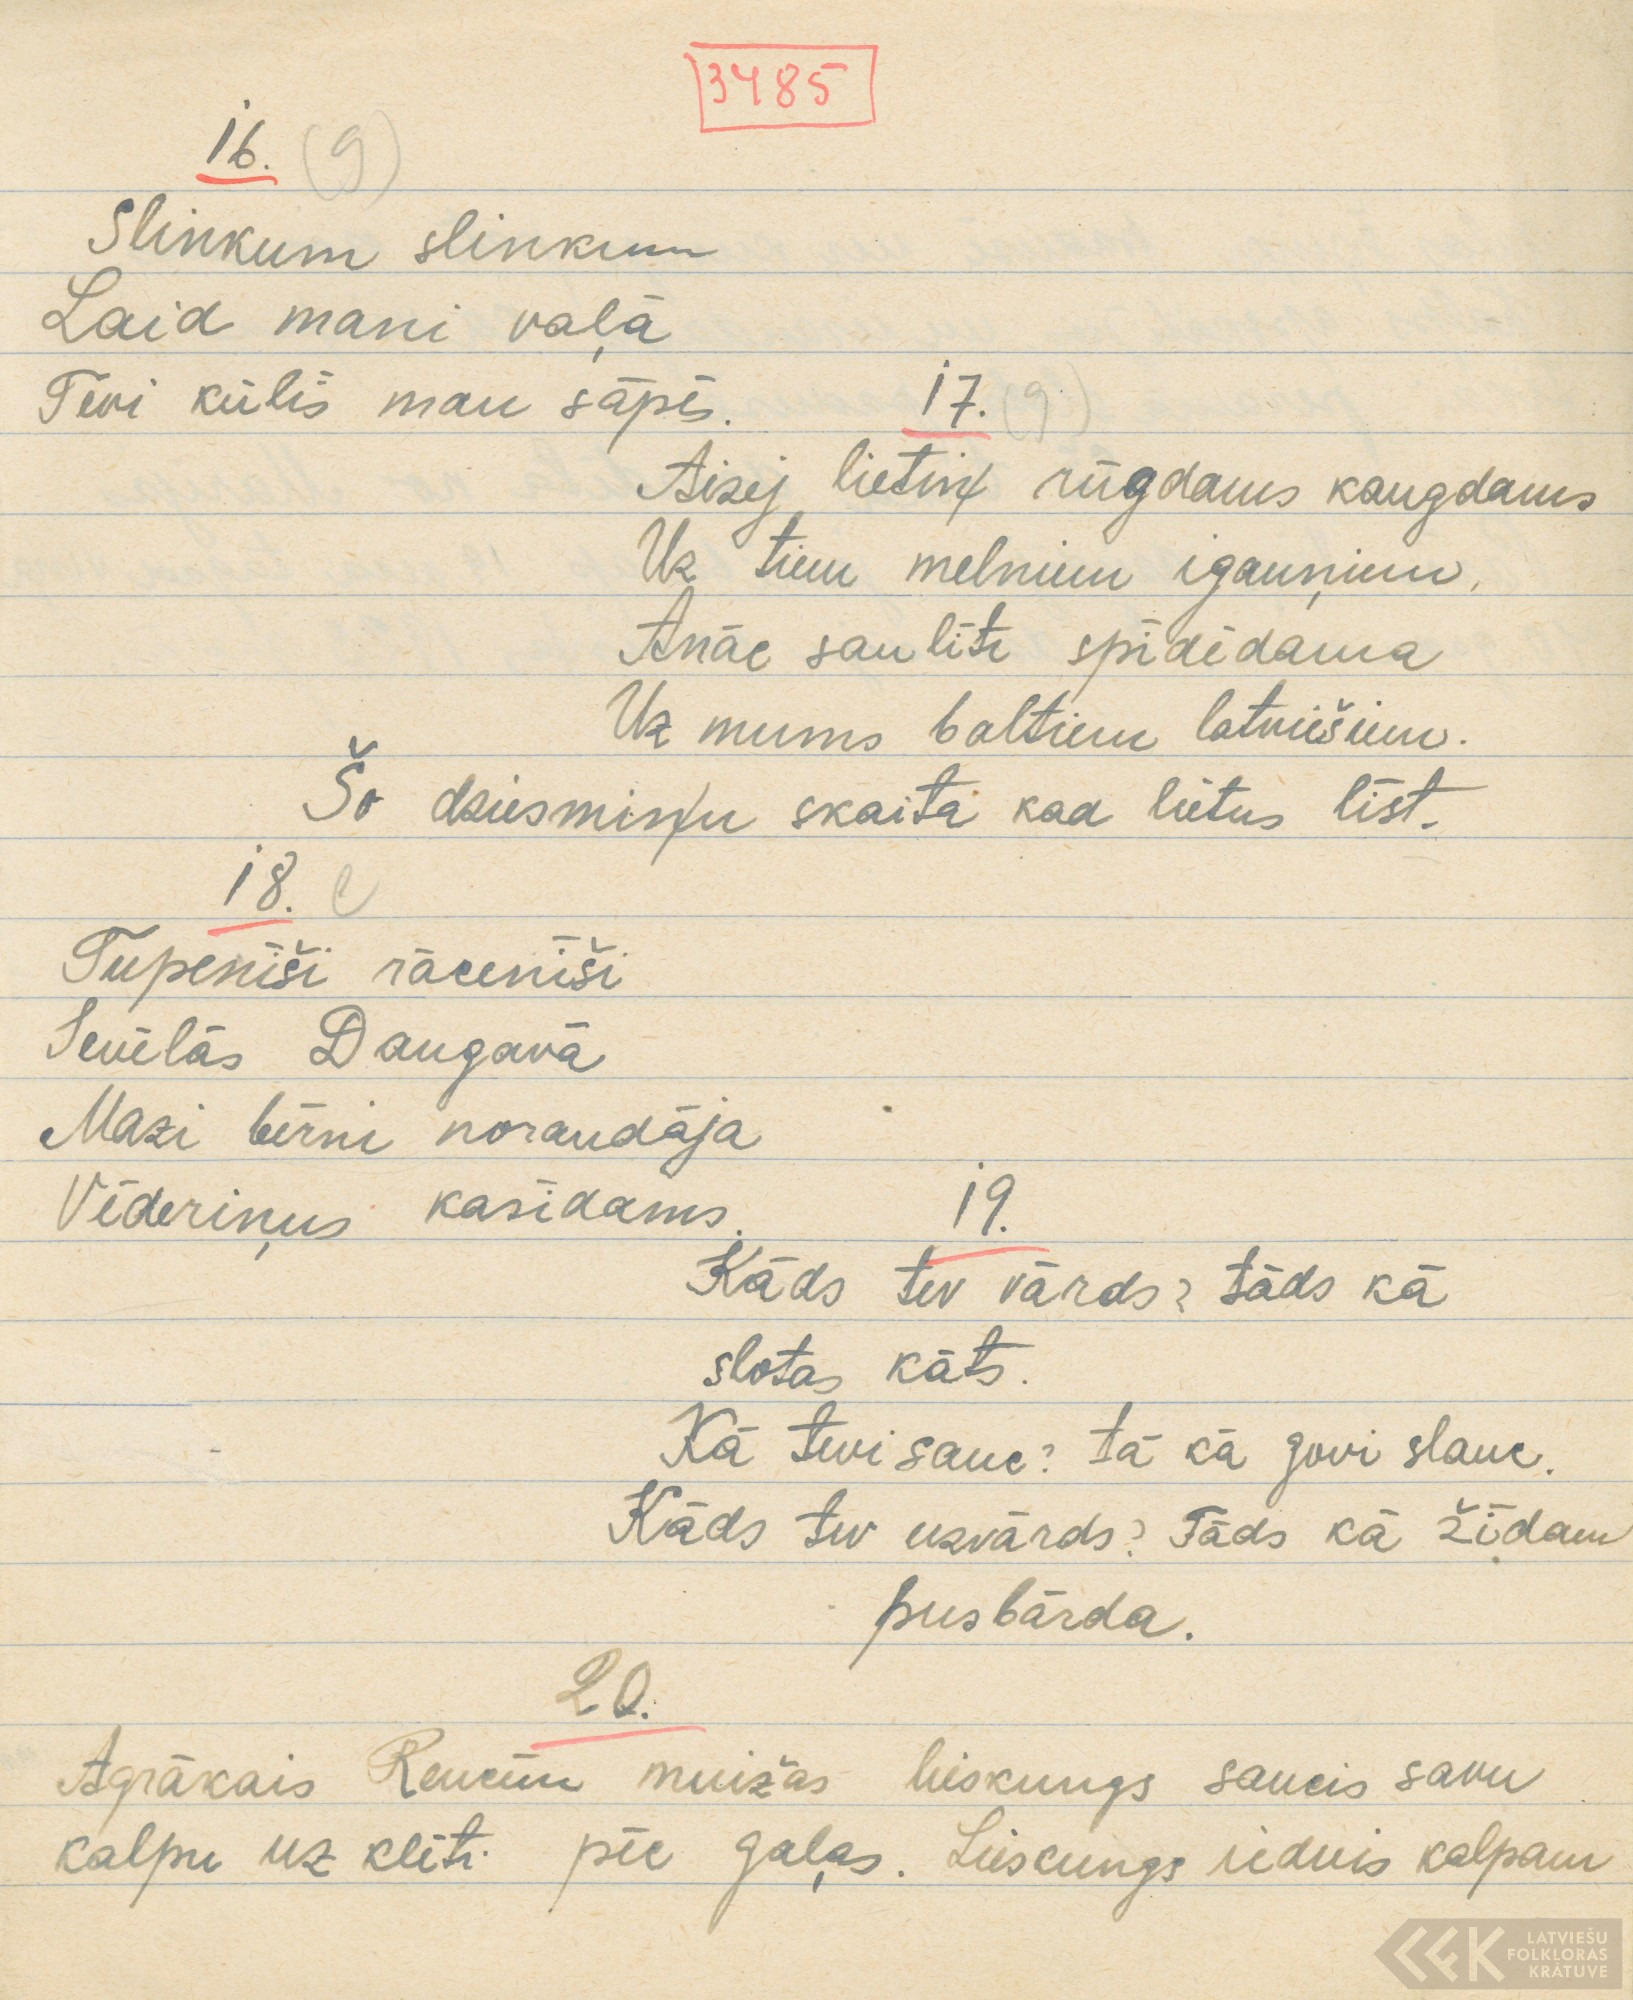 3485
16. (g)
Slinkum slinkum
Laid mani vaļā
Tevi kūlīs man sāpēs.
17. (g)
Aizej lietiņ rūgdams kaugdams
Uz tiem melniem igauņiem,
Atnāc saulīte spīdēdama
Uz mums baltiem latviešiem.
Šo dziesmiņu skaita kad lietus līst.
18. e
Tupenīši rācenīši
Sevēlās Daugavā
Mazi bērni noraudāja
Vēderiņus kasīdams.
19.
Kāds tev vārds? tāds kā
slotas kāts.
Kā tevi sauc? tā kā govi slauc.
Kāds tev uzvārds? Tāds kā žīdam
pusbārda.
20.
Agrākais Rencēnu muižas lieskungs saucis savu
kalpu uz klēti pēc gaļas. Lieskungs iedevis kalpam
LATVIEŠU
FOLKLORAS
KRĀTUVE